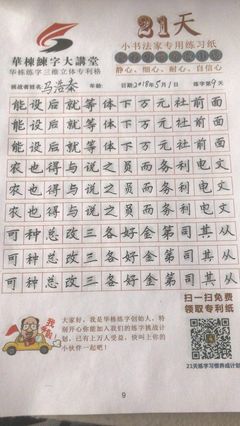 華棟練字大講堂
华栋练字三维立体专利格
21天
小书法家专用练习纸
静心、细心、耐心、自信心
挑战者姓名 马浩秦 年龄 日期2018年5月1日 练字第9天
能设后就等体下万元社前面
能设后就等体下万元社前面
能设后就等体下万元社前面
农也得与说之员而务利电文
农也得与说之员而务利电文
农也得与说之员而务利电文
可种总改三各好金第司其从
可种总改三各好金第司其从
可种总改三各好金第司其从
我
大家好,我是华栋练字创始人,特
别开心你能加入我们的练字挑战计
划,已有上万人受益,快叫上你的
小伙伴一起吧!
扫一扫免费
领取专利纸
21天练字习惯养成计划
9